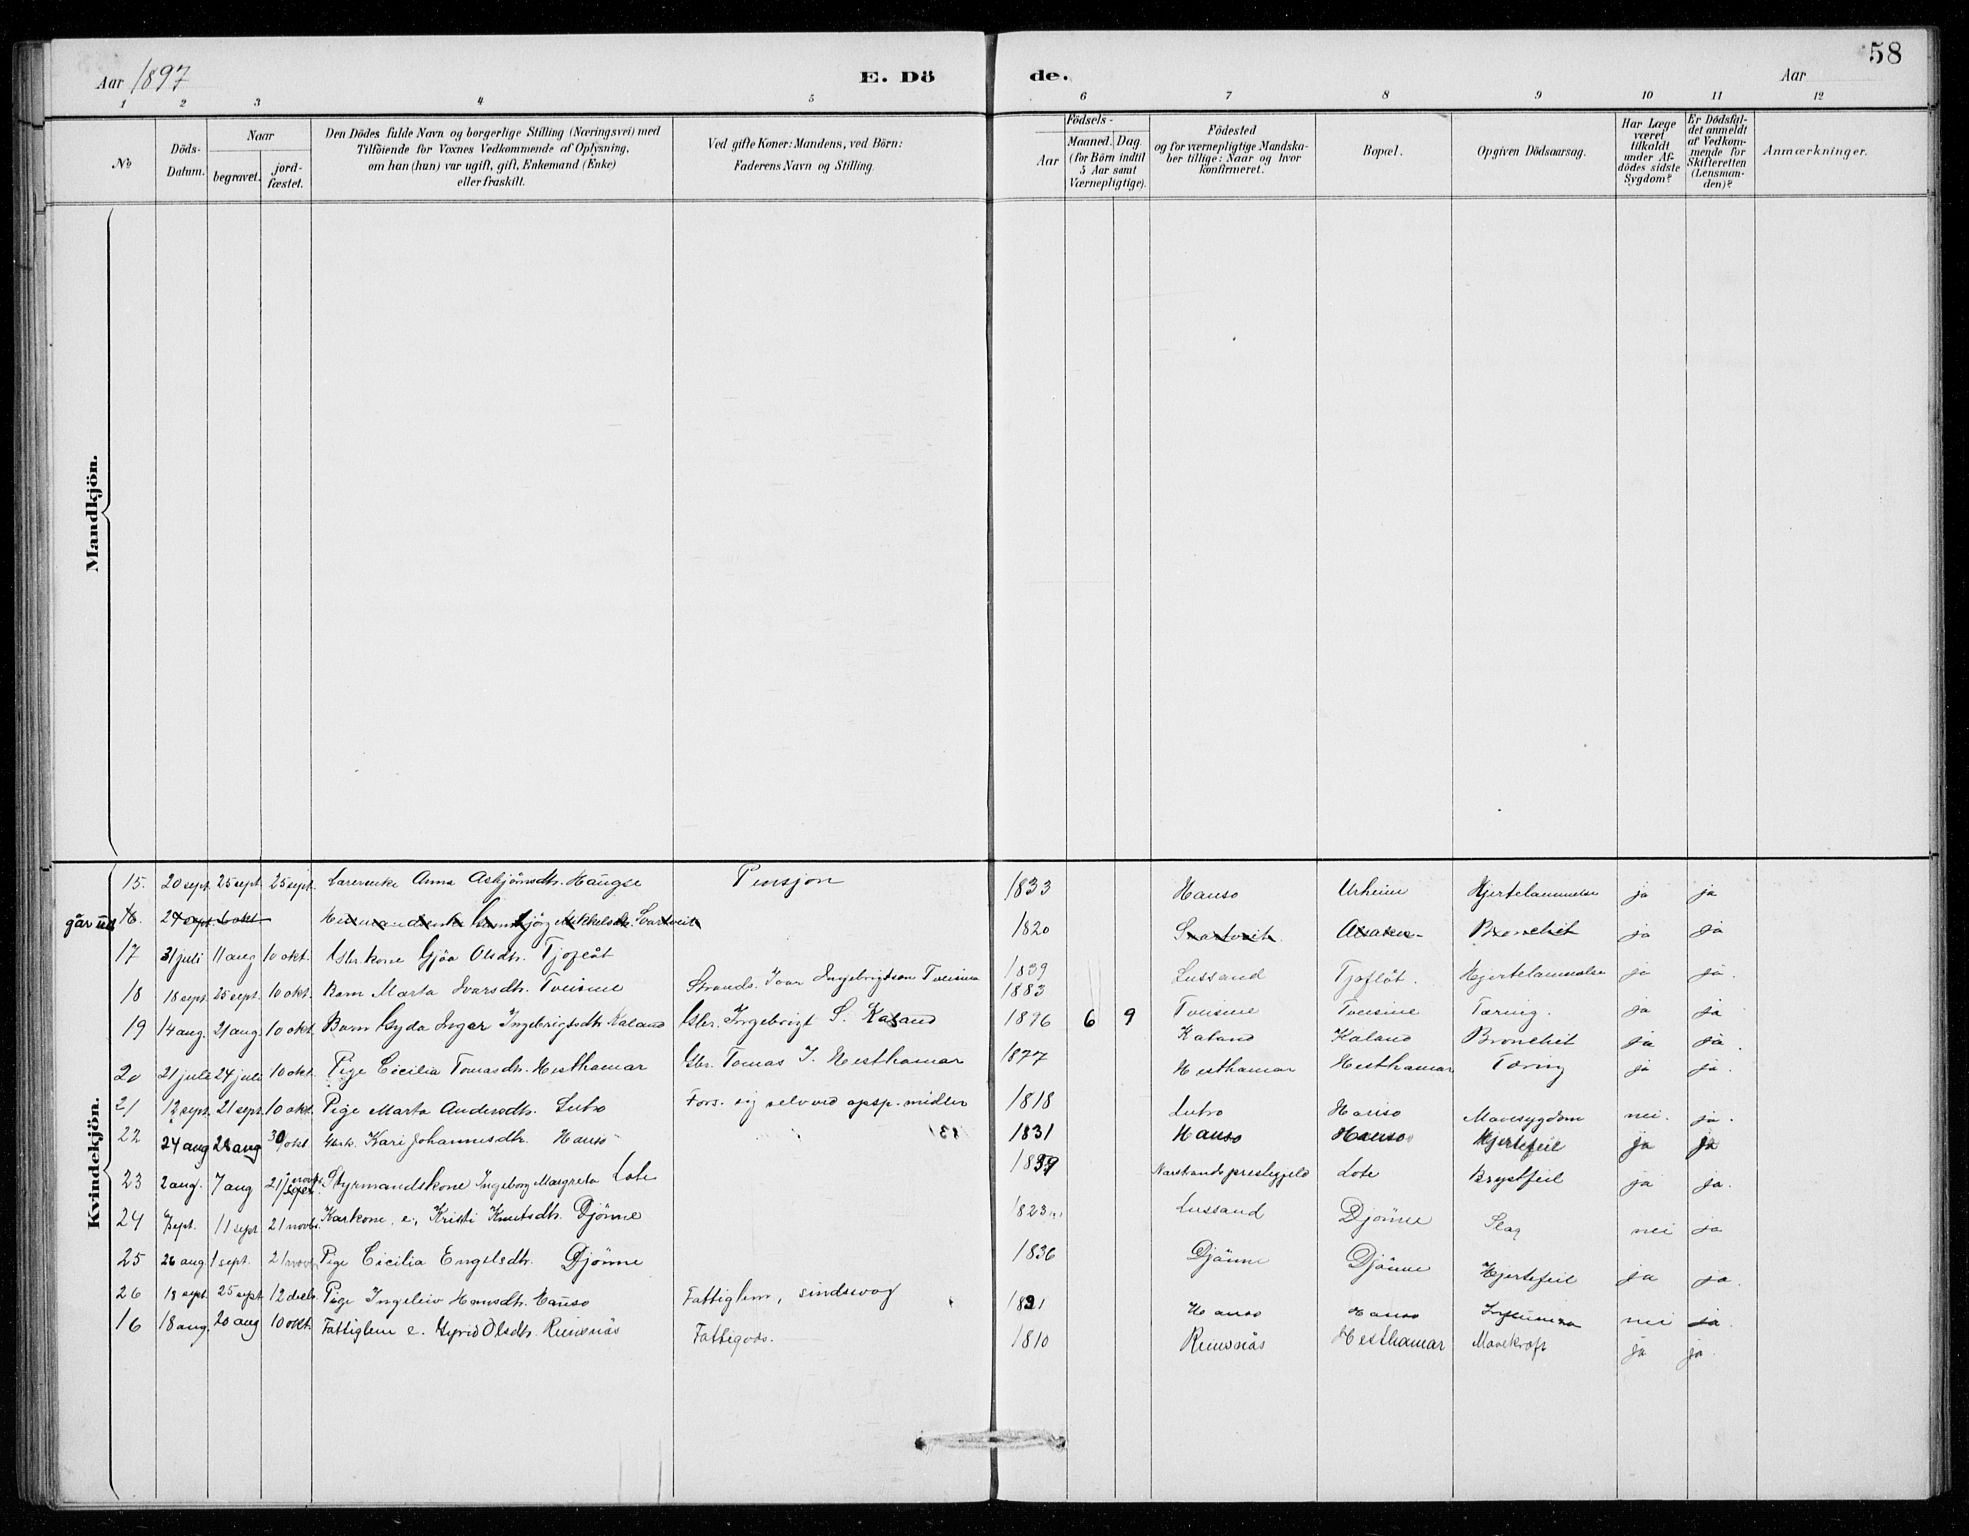 58
Aar 1897 E. Dö de. Aar
1 2 3 4 5 6 7 8 9 10 11 12
No
Döds-Datum.
Naar
begravet. jord-fæstet.
Den Dödes fulde Navn og borgerlige Stilling (Næringsvei) med
Tilföiende for Voxnes Vedkommende af Oplysning,
om han (hun) var ugift, gift, Enkemand (Enke)
eller fraskilt.
Ved gifte Koner: Mandens, ved Börn:
Faderens Navn og Stilling.
Aar
Födsels-
Maaned. Dag
(for Börn indtil
5 Aar samt
Værnepligtige).
Födested
og for værnepligtige Mandska-
ber tillige: Naar og hvor
konfirmeret.
Bopæl.
Opgiven Dödsaarsag.
Har Læge
været
tilkaldt
under Af-
dödes sidste
Sygdom?
Er Dödsfal-
det anmeldt
af Vedkom-
mende for
Skifteretten
(Lensman-
den)?
Anmærkninger.
Mandkjön.
Kvindekjön.
15. 20 sept. 25 sept. 25 sept. Anna Asbjörnsdtr. Haugse Pensjon 1833 Hauso Urheim Hjertelammelse ja ja
går ud 16. 24 sept. 6 okt. Mikkelsdtr. Svartveit 1820 Svartveit Bronchit ja ja
17 31 juli 11 aug 10 okt. Gbr.kone Gjöa Olsdtr. Tjoflåt 1839 Lussand Tjoflåt. Hjertelammelse ja ja
18 18 sept. 25 sept. 10 okt. Barn Marta Ivarsdtr. Tveisme Strands. Ivar Ingebrigtson Tveisme 1883 Tveisme Tveisme Tæring. ja ja
19 14 aug. 21 aug. 10 okt. Barn Gyda Ingar Ingebrigtsdtr. Kaland Gbr. Ingebrigt S. Kaland 1896 6 9 Kaland Kaland Bronchit ja ja
20 21 juli 24 juli 10 okt. Pige Cicilia Tomasdtr. Hesthamar Gbr. Tomas I. Hesthamar 1877 Hesthamar Hesthamar Tæring ja ja.
21 12 sept. 21 sept. 10 okt. Pige Marta Andersdtr. Lutro Fors. sig selv ved opsp. midler 1818 Lutro Hauso Mavesygdom nei. ja.
22 24 aug 28 aug 30 okt. Kari Johannesdtr. Hauso 1831 Hauso Hauso Hjertefeil ja ja
23 2 aug. 7 aug 21 novbr. Styrmandskone Ingeborg Margreta Lote 1839 Lote Brystfeil ja ja.
24 7 sept. 11 sept 21 novbr. Karkone, e., Kristi Knutsdtr. Djönne 1823 Lussand Djönne Slag nei ja
25 26 aug. 1 sept. 21 novbr. Pige Cicilia Engelsdtr. Djönne 1836 Djönne Djönne Hjertefeil ja ja.
26 18 sept. 25 sept 12 decbr. Pige Ingeleiv Hansdtr. Hauso Fattiglem, sindssvag Hauso Hauso nei ja.
16 18 aug. 20 aug 10 okt. Fattiglem e. Olsdtr. Reisenäs Fattigods. 1810 Reisenäs Hesthamar Mavekræft ja ja.